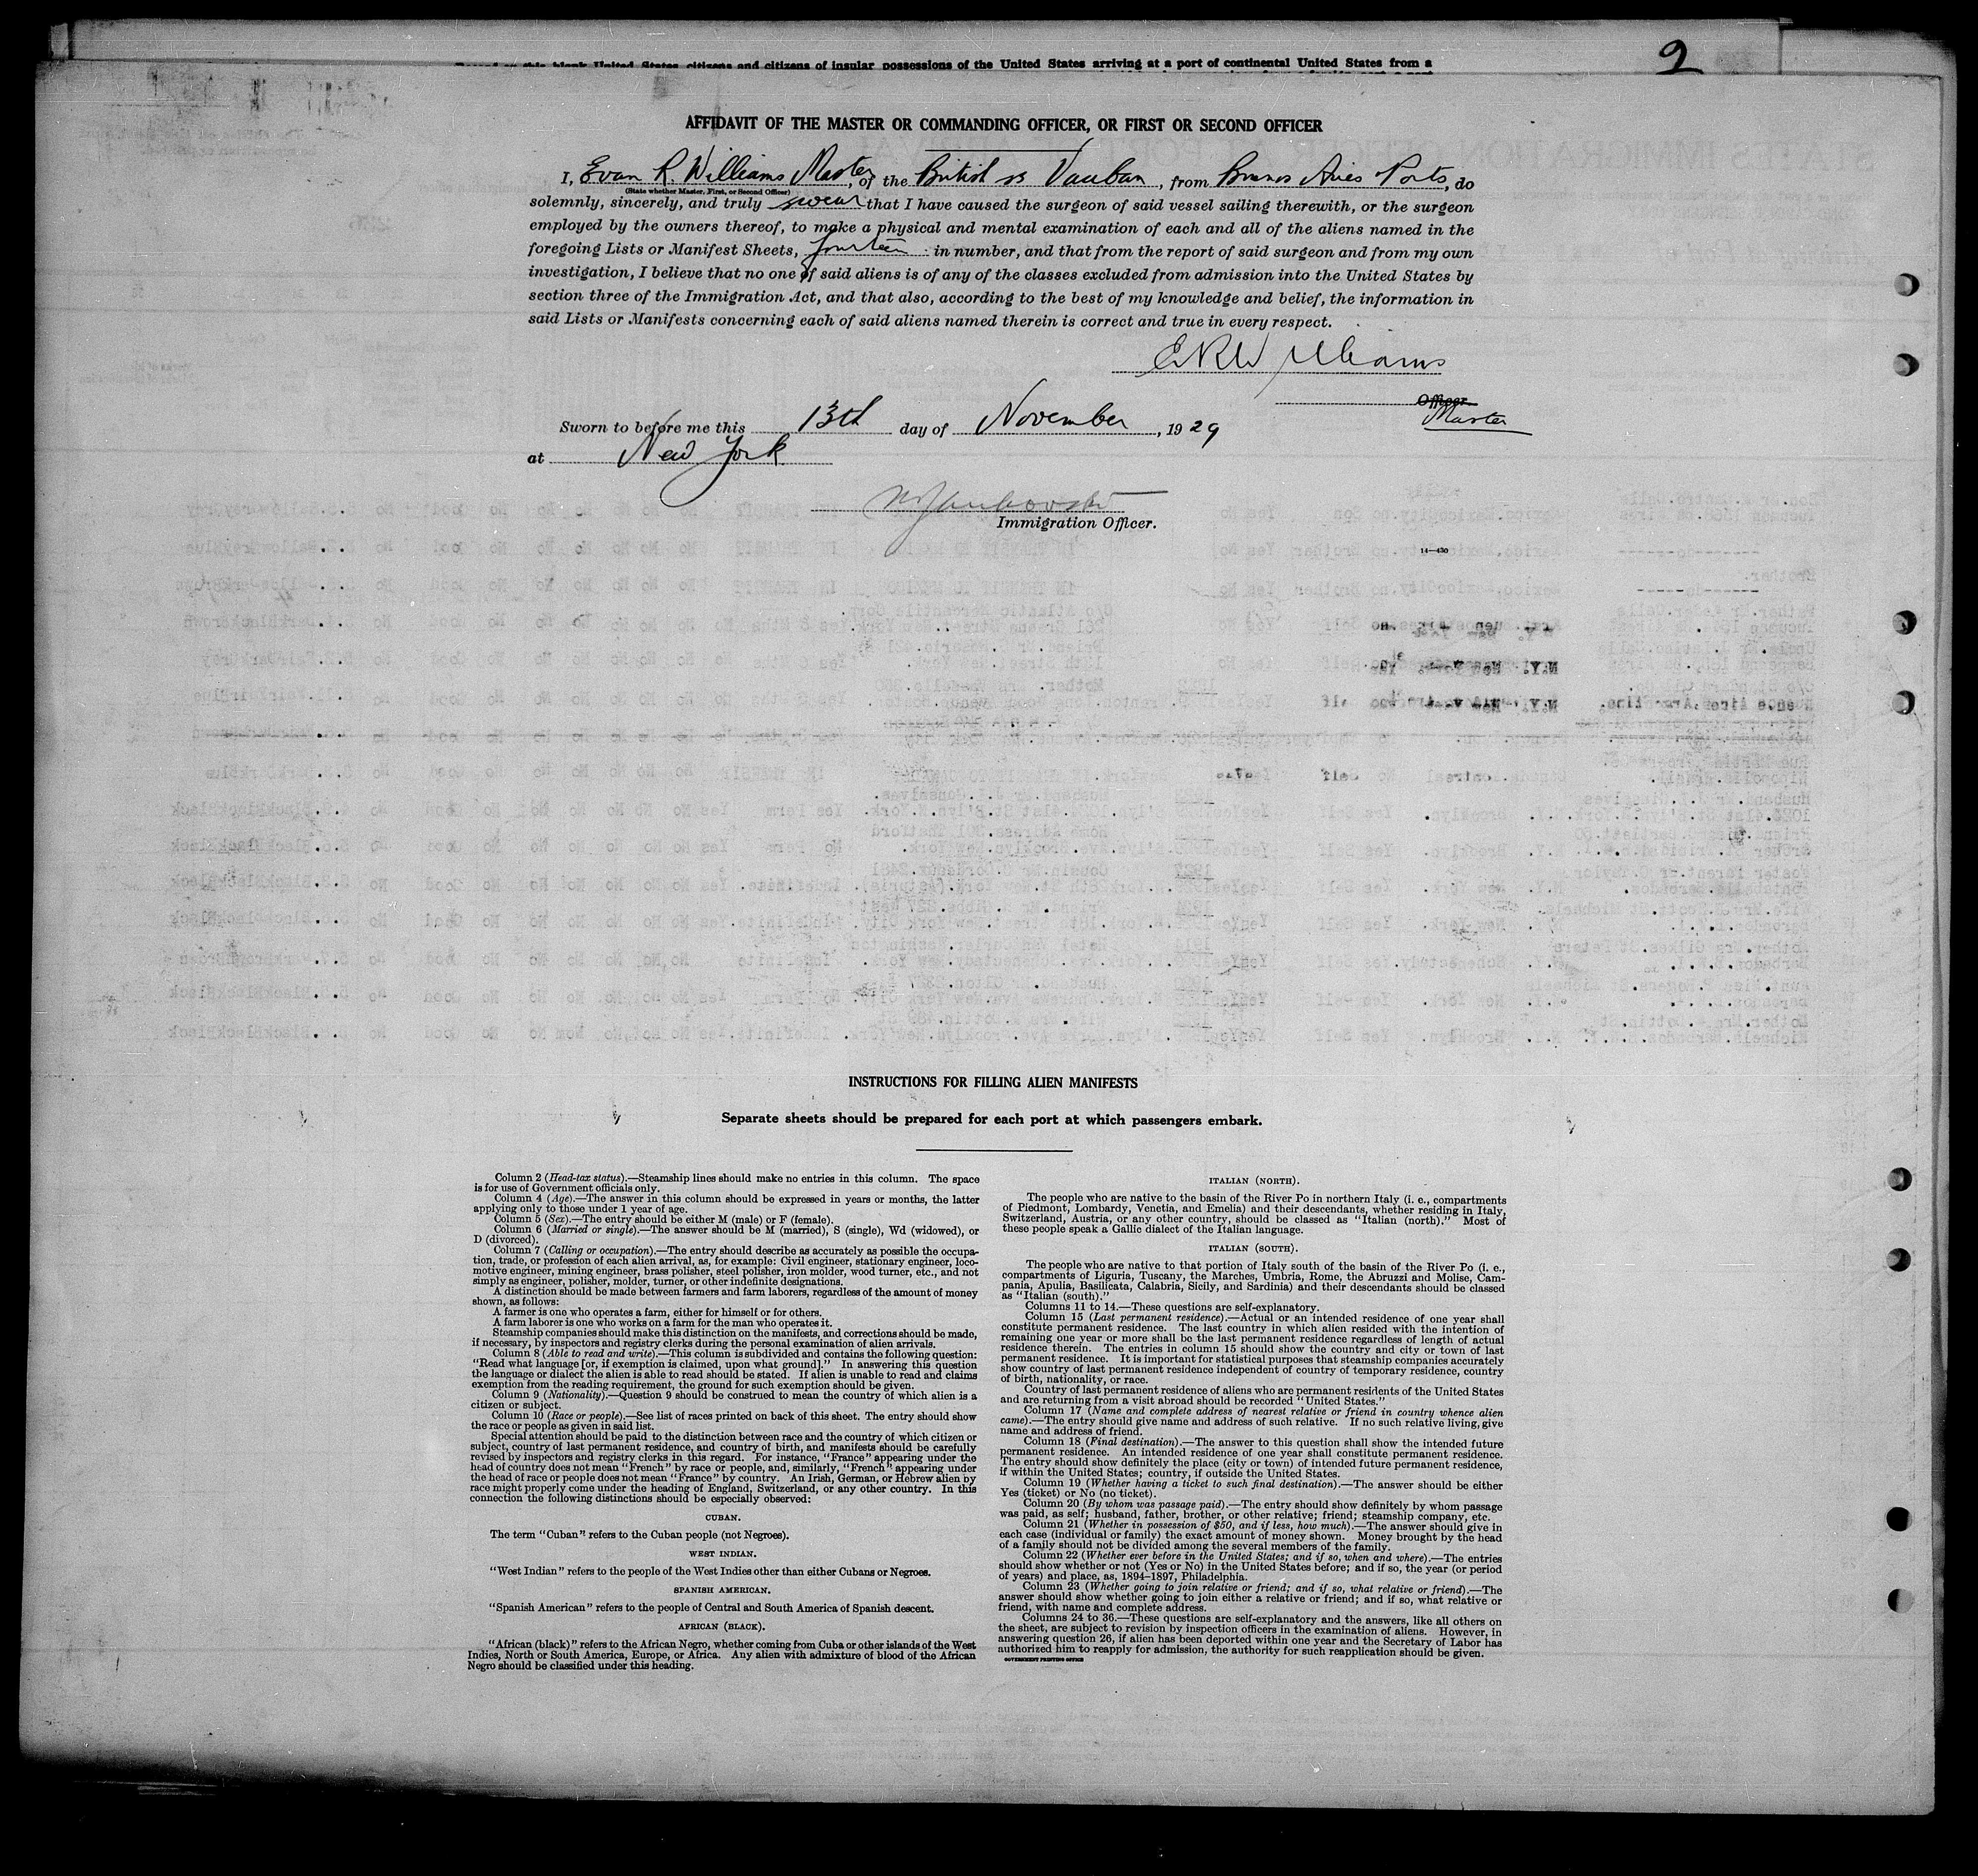 2
Based on this blank United States citizens and citizens of insular possessions of the United States arriving at a port of continental United States from a
AFFIDAVIT OF THE MASTER OR COMMANDING OFFICER, OR FIRST OR SECOND OFFICER
I, Evan R. Williams Master, of the British ss Vauban, from Buenos Aires Ports, do
(State whether Master, First, or Second Officer)
solemnly, sincerely, and truly swear that I have caused the surgeon of said vessel sailing therewith, or the surgeon
employed by the owners thereof, to make a physical and mental examination of each and all of the aliens named in the
foregoing Lists or Manifest Sheets, fourteen in number, and that from the report of said surgeon and from my own
investigation, I believe that no one of said aliens is of any of the classes excluded from admission into the United States by
section three of the Immigration Act, and that also, according to the best of my knowledge and belief, the information in
said Lists or Manifests concerning each of said aliens named therein is correct and true in every respect.
E R Williams
Officer.
Master
Sworn to before me this 13th day of November, 1929
at New York
Immigration Officer.
14-430
INSTRUCTIONS FOR FILLING ALIEN MANIFESTS
Separate sheets should be prepared for each port at which passengers embark.
Column 2 (Head-tax status).—Steamship lines should make no entries in this column. The space
is for use of Government officials only.
Column 4 (Age).—The answer in this column should be expressed in years or months, the latter
applying only to those under 1 year of age.
Column 5 (Sex).—The entry should be either M (male) or F (female).
Column 6 (Married or single).—The answer should be M (married), S (single), Wd (widowed), or
D (divorced).
Column 7 (Calling or occupation).—The entry should describe as accurately as possible the occupa-
tion, trade, or profession of each alien arrival, as, for example: Civil engineer, stationary engineer, loco-
motive engineer, mining engineer, brass polisher, steel polisher, iron molder, wood turner, etc., and not
simply as engineer, polisher, molder, turner, or other indefinite designations.
A distinction should be made between farmers and farm laborers, regardless of the amount of money
shown, as follows:
A farmer is one who operates a farm, either for himself or for others.
A farm laborer is one who works on a farm for the man who operates it.
Steamship companies should make this distinction on the manifests, and corrections should be made,
if necessary, by inspectors and registry clerks during the personal examination of alien arrivals.
Column 8 (Able to read and write).—This column is subdivided and contains the following question:
"Read what language [or, if exemption is claimed, upon what ground]." In answering this question
the language or dialect the alien is able to read should be stated. If alien is unable to read and claims
exemption from the reading requirement, the ground for such exemption should be given.
Column 9 (Nationality).—Question 9 should be construed to mean the country of which alien is a
citizen or subject.
Column 10 (Race or people).—See list of races printed on back of this sheet. The entry should show
the race or people as given in said list.
Special attention should be paid to the distinction between race and the country of which citizen or
subject, country of last permanent residence, and country of birth, and manifests should be carefully
revised by inspectors and registry clerks in this regard. For instance, "France" appearing under the
head of country does not mean "French" by race or people, and, similarly, "French" appearing under
the head of race or people does not mean "France" by country. An Irish, German, or Hebrew alien by
race might properly come under the heading of England, Switzerland, or any other country. In this
connection the following distinctions should be especially observed:
CUBAN.
The term "Cuban" refers to the Cuban people (not Negroes).
WEST INDIAN.
"West Indian" refers to the people of the West Indies other than either Cubans or Negroes.
SPANISH AMERICAN.
"Spanish American" refers to the people of Central and South America of Spanish descent.
AFRICAN (BLACK).
"African (black)" refers to the African Negro, whether coming from Cuba or other islands of the West
Indies, North or South America, Europe, or Africa. Any alien with admixture of blood of the African
Negro should be classified under this heading.
ITALIAN (NORTH).
The people who are native to the basin of the River Po in northern Italy (i. e., compartments
of Piedmont, Lombardy, Venetia, and Emelia) and their descendants, whether residing in Italy,
Switzerland, Austria, or any other country, should be classed as "Italian (north)." Most of
these people speak a Gallic dialect of the Italian language.
ITALIAN (SOUTH).
The people who are native to that portion of Italy south of the basin of the River Po (i. e.,
compartments of Liguria, Tuscany, the Marches, Umbria, Rome, the Abruzzi and Molise, Cam-
pania, Apulia, Basilicata, Calabria, Sicily, and Sardinia) and their descendants should be classed
as "Italian (south)."
Columns 11 to 14.—These questions are self-explanatory.
Column 15 (Last permanent residence).—Actual or an intended residence of one year shall
constitute permanent residence. The last country in which alien resided with the intention of
remaining one year or more shall be the last permanent residence regardless of length of actual
residence therein. The entries in column 15 should show the country and city or town of last
permanent residence. It is important for statistical purposes that steamship companies accurately
show country of last permanent residence independent of country of temporary residence, country
of birth, nationality, or race.
Country of last permanent residence of aliens who are permanent residents of the United States
and are returning from a visit abroad should be recorded "United States."
Column 17 (Name and complete address of nearest relative or friend in country whence alien
came).—The entry should give name and address of such relative. If no such relative living, give
name and address of friend.
Column 18 (Final destination).—The answer to this question shall show the intended future
permanent residence. An intended residence of one year shall constitute permanent residence.
The entry should show definitely the place (city or town) of intended future permanent residence,
if within the United States; country, if outside the United States.
Column 19 (Whether having a ticket to such final destination).—The answer should be either
Yes (ticket) or No (no ticket).
Column 20 (By whom was passage paid).—The entry should show definitely by whom passage
was paid, as self; husband, father, brother, or other relative; friend; steamship company, etc.
Column 21 (Whether in possession of $50, and if less, how much).—The answer should give in
each case (individual or family) the exact amount of money shown. Money brought by the head
of a family should not be divided among the several members of the family.
Column 22 (Whether ever before in the United States; and if so, when and where).—The entries
should show whether or not (Yes or No) in the United States before; and if so, the year (or period
of years) and place, as, 1894-1897, Philadelphia.
Column 23 (Whether going to join relative or friend; and if so, what relative or friend).—The
answer should show whether going to join either a relative or friend; and if so, what relative or
friend, with name and complete address.
Columns 24 to 36.—These questions are self-explanatory and the answers, like all others on
the sheet, are subject to revision by inspection officers in the examination of aliens. However, in
answering question 26, if alien has been deported within one year and the Secretary of Labor has
authorized him to reapply for admission, the authority for such reapplication should be given.
GOVERNMENT PRINTING OFFICE